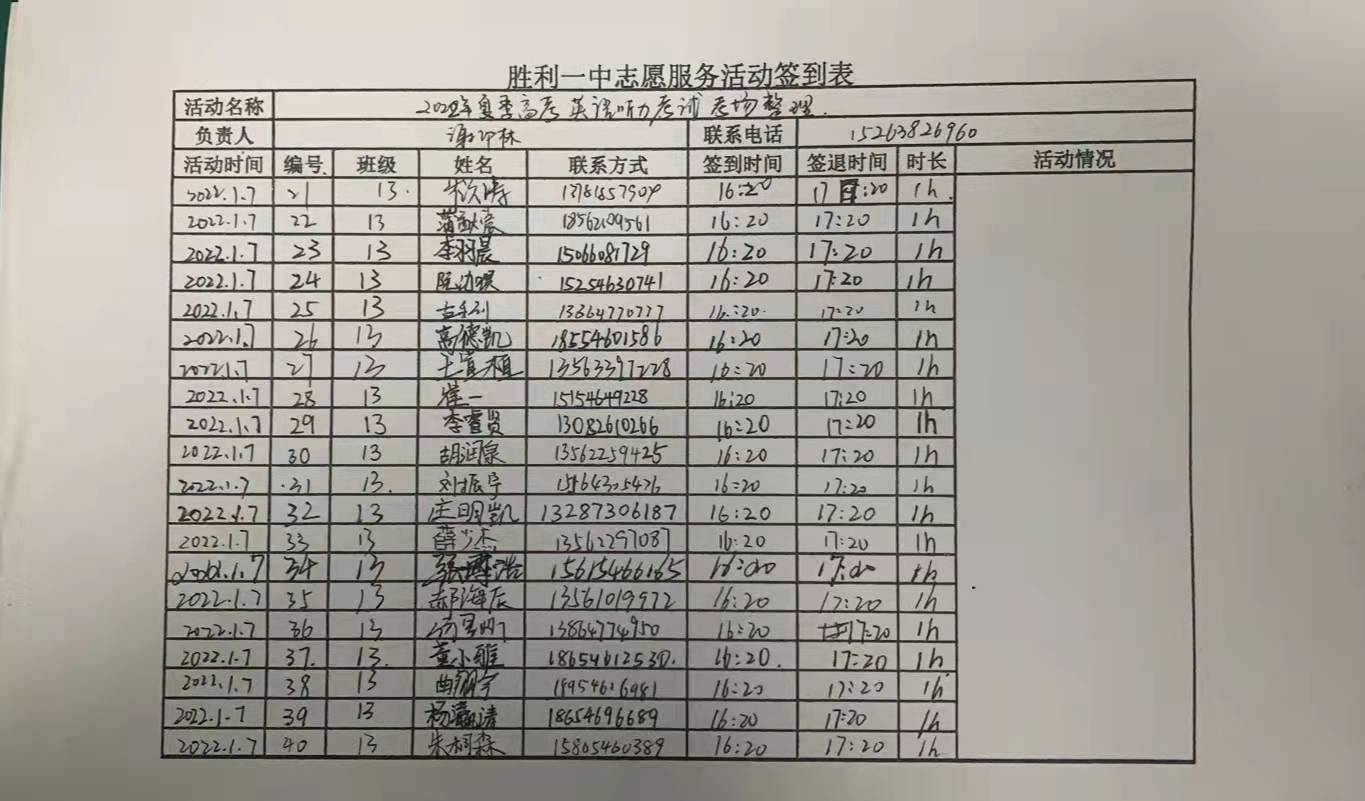 胜利一中志愿服务活动签到表
活动名称 2022年夏季高考英语听力考试考场整理.
负责人 联系电话 15263826960
活动时间 编号 班级 姓名 联系方式 签到时间 签退时间 时长 活动情况
2022.1.7 21 13. 16:20 17 :20 1h.
2022.1.7 22 13 18562109561 16:20 17:20 1h
2022.1.7 23 13 李羽晨 15066081729 16:20 17:20 1h
2022.1.7 24 13 15254630741 16:20 17:20 1h
2022.1.7 25 13 16:20 17:20 1h
2022.1.7 26 13 高德凯 18554601586 16:20 17:20 1h
2022.1.7 27 13 13563397228 16:20 17:20 1h
2022.1.7 28 13 崔一 15154649228 16:20 17:20 1h
2022.1.7 29 13 李睿贤 13082610266 16:20 17:20 1h
2022.1.7 30 13 胡润泉 13562259425 16:20 17:20 1h
2022.1.7 31 13. 刘振宇 16:20 17:20 1h
2022.1.7 32 13 庄明凯 13287306187 16:20 17:20 1h
2022.1.7 33 13 薛少杰 13562297087 16:20 17:20 1h
2022.1.7 34 13 15615466165 16:20 17:20 1h
2022.1.7 35 13 郝海辰 13561019972 16:20 17:20 1h
2022.1.7 36 13 13864774950 16:20 17:20 1h
2022.1.7 37. 13. 董小雅 18654612530. 16:20. 17:20 1h
2022.1.7 38 13 16:20 17:20 1h
2022.1.7 39 13 18654696689 16:20 17:20 1h
2022.1.7 40 13 朱柯森 15805460389 16:20 17:20 1h